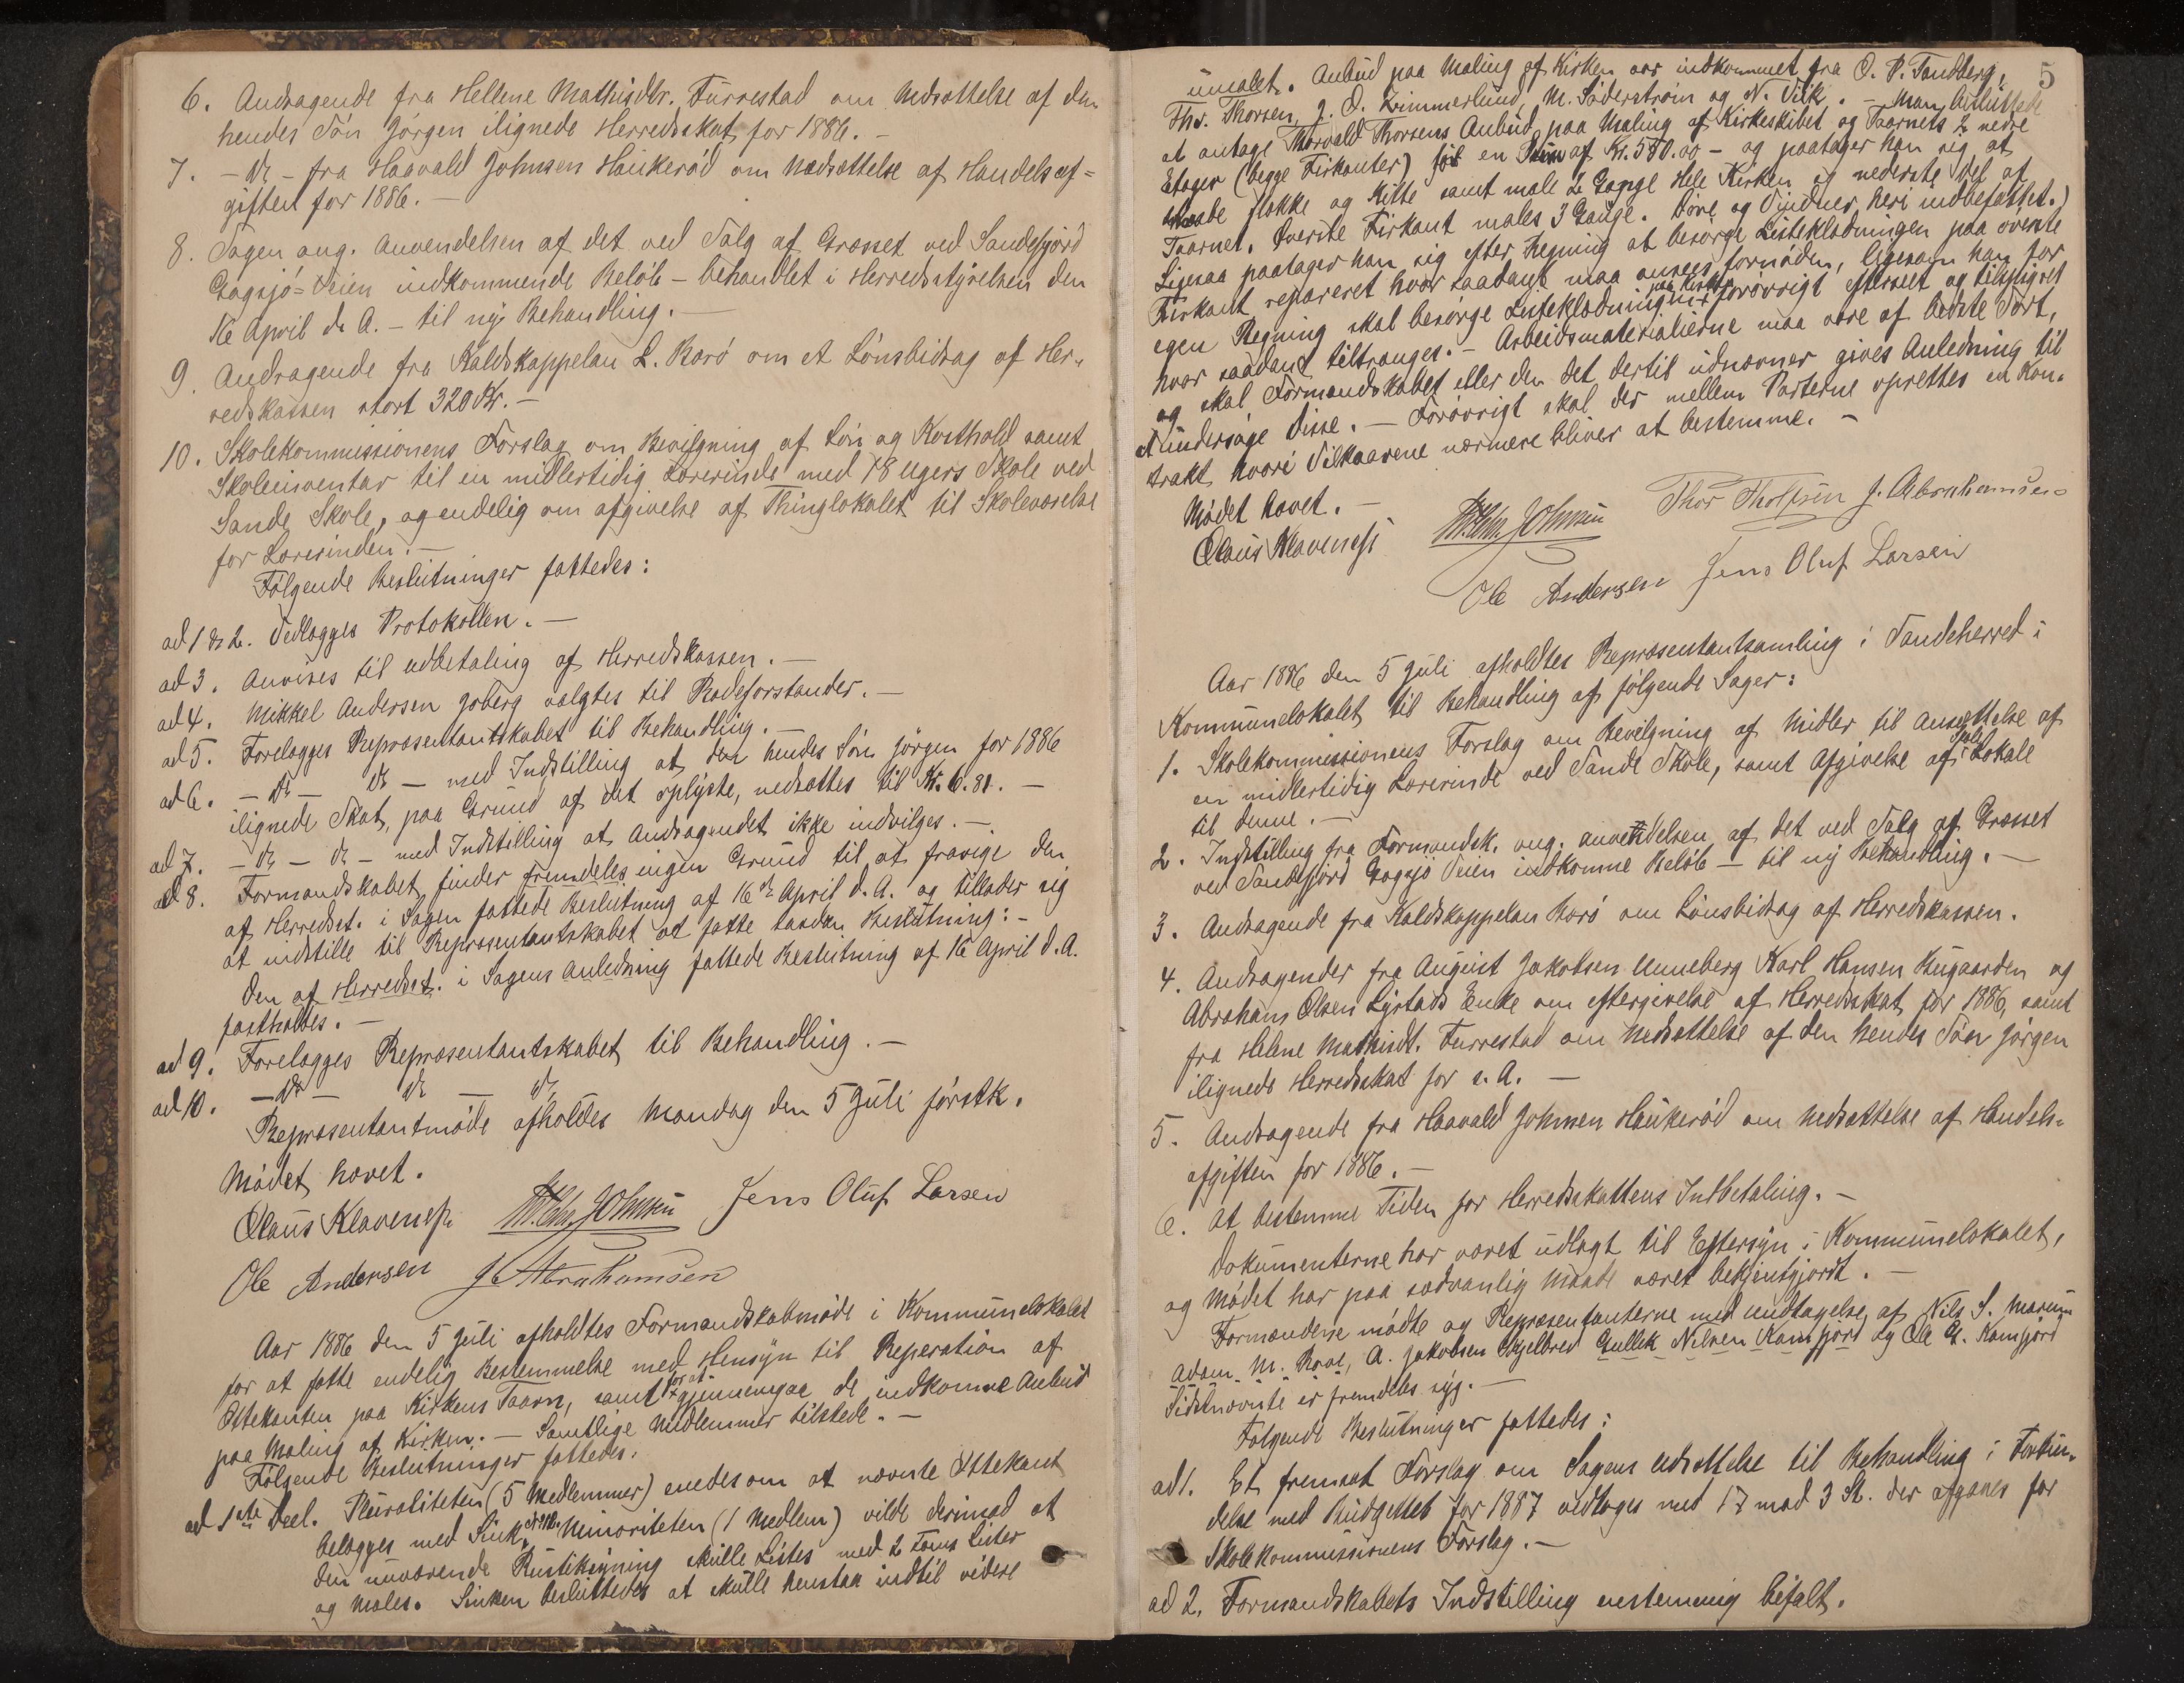 6. Andragende fra Hellene Mathisdtr. Furrestad om Nedsættelse af den
hendes Søn Jørgen ilignede Herredsskat for 1886. –
7. – Do – fra Haavald Johnsen Haukerød om Nedsættelse af Handelsaf=
giften for 1886. –
8. Sagen ang. Anvendelsen af det ved Salg af Græsset ved Sandefjord
Gogsjø=Veien indkommende Beløb – behandlet i Herredsstyrelsen den
16 April d. A. – til ny Behandling. –
9. Andragende fra Kaldskappelan L. Borø om et Lønsbidrag af Her=
redskassen stort 320 Kr. –
10. Skolekommissionens Forslag om Bevilgning af Løn og Kosthold samt
Skoleinventar til en midlertidig Lærerinde med 18 Ugers Skole ved
Sande Skole, og endelig om afgivelse af Thinglokalet til Skoleværelse
for Lærerinden. –
Følgende Beslutninger fattedes:
ad 1 & 2. Vedlægges Protokollen. –
ad 3. Anvises til udbetaling af Herredskassen. –
ad 4. Mikkel Andersen Joberg valgtes til Rodeforstander. –
ad 5. Forelægges Repræsentantskabet til Behandling. –
ad 6. – Do – Do – med Indstilling at den hendes Søn Jørgen for 1886
ilignede Skat, paa Grund af det oplyste, nedsættes til Kr. 6.81. –
ad 7. – Do – Do – med Indstilling at Andragendet ikke indvilges. –
ad 8. Formandskabet finder fremdeles ingen Grund til at fravige den
af Herredsst. i Sagen fattede Beslutning af 16de April d. A. og tillader sig
at indstille til Repræsentantskabet at fatte saadan Beslutning: –
Den af Herredsst. i Sagens Anledning fattede Beslutning af 16 April d. A.
fastholdes. –
ad 9. Forelægges Repræsentantskabet til Behandling. –
ad 10. – Do – Do – Do
Repræsentantmøde afholdes Mandag den 5 Juli førstk.
Mødet hævet.
Claus Klaveness M. Chr. Johnsen Jens Oluf Larsen
Ole Andersen J. Abrahamsen
Aar 1886 den 5 Juli afholdtes Formandskabmøde i Kommunelokalet
for at fatte endelig Bestemmelse med Hensyn til Reperation af
Ottekanten paa Kirkens Taarn, samt for at gjennemgaa de indkomne Anbud
paa Maling af Kirken. – Samtlige Medlemmer tilstede. –
Følgende Beslutninger fattedes:
ad 1ste Deel. Pluraliteten (5 Medlemmer) enedes om at nævnte Ottekant
belægges med Sink Minoriteten (1 Medlem) vilde derimod at
den nuværende Rustiksning skulle Listes med 2 Toms Lister
og males. Sinken besluttedes at skulle henstaa indtil videre
5
umalet. Anbud paa Maling af Kirken var indkommet fra O. P. Tandberg,
Thv. Thorsen, J. O. Zimmerlund, M. Søderstrøm og N. Vilk. – Man besluttede
at antage Thorvald Thorsens Anbud paa Maling af Kirkeskibet og Taarnets 2 nedre
Etager (begge Firkanter) for en Sum af Kr. 580.00 – og paatager han sig at
skrabe flække og Kitte samt male 2 Gange Hele Kirken og nederste del af
Taarnet. Øverste Firkant males 3 Gange. Døre og Vinduer heri indbefattet.)
Ligesaa paatager han sig efter Regning at besørge Listeklædningen paa øverste
Firkant repareret hvor saadant maa ansees fornøden, ligesom han for
egen Regning skal besørge Listeklædningen paa Kirken forøvrigt efterseet og tilspigret
hvor saadant tiltrænges. – Arbeidsmaterialierne maa være af bedste Sort,
og skal Formandskabet eller den det dertil udnævner gives Anledning til
at undersøge disse. – Forøvrigt skal der mellem Parterne oprettes en Kon=
trakt hvori Vilkaarene nærmere bliver at bestemme. –
Mødet hævet. –
Claus Klaveness M. Chr. Johnsen Thor Tholfsen J. Abrahamsen
Ole Andersen Jens Oluf Larsen
Aar 1886 den 5 Juli afholdtes Repræsentantsamling i Sandeherred i
Kommunelokalet til Behandling af følgende Sager:
1. Skolekommissionens Forslag om Bevilgning af Midler til Ansættelse af
en midlertidig Lærerinde ved Sande Skole, samt Afgivelse af Lokale
til denne. –
2. Indstilling fra Formandsk. ang. anvendelsen af det ved Salg af Græsset
ved Sandefjord Gogsjø Veien indkomne Beløb – til ny Behandling. –
3. Andragende fra Kaldskappelan Borø om Lønsbidrag af Herredskassen.
4. Andragender fra August Jakobsen Unneberg Karl Hansen Hugaarden og
Abraham Olsen Lystads Enke om eftergivelse af Herredsskat for 1886, samt
fra Helene Mathisdt. Furrestad om Nedsættelse af den hendes Søn Jørgen
ilignede Herredsskat for s. A. –
5. Andragende fra Haavald Johnsen Haukerød om Nedsættelse af Handels=
afgiften for 1886. –
6. At bestemme Tiden for Herredsskattens Indbetaling. –
Dokumenterne har været udlagt til Eftersyn i Kommunelokalet,
og Mødet har paa sædvanlig Maade været bekjentgjordt. –
Formændene mødte og Repræsentanterne med undtagelse af Nils S. Marum
Adam M. Roos, A. Jakobsen Skjelbred Gullik Nilsen Kamfjord og Ole G. Kamfjord
Sidstnævnte er fremdeles syg. –
Følgende Beslutninger fattedes:
ad 1. Et fremsat Forslag om Sagens Udsættelse til Behandling i Forbin=
delse med Budgettet for 1887 vedtoges med 17 mod 3 St. der afgaves for
Skolekommissionens Forslag. –
ad 2. Formandskabets Indstilling enstemmig bifalt.